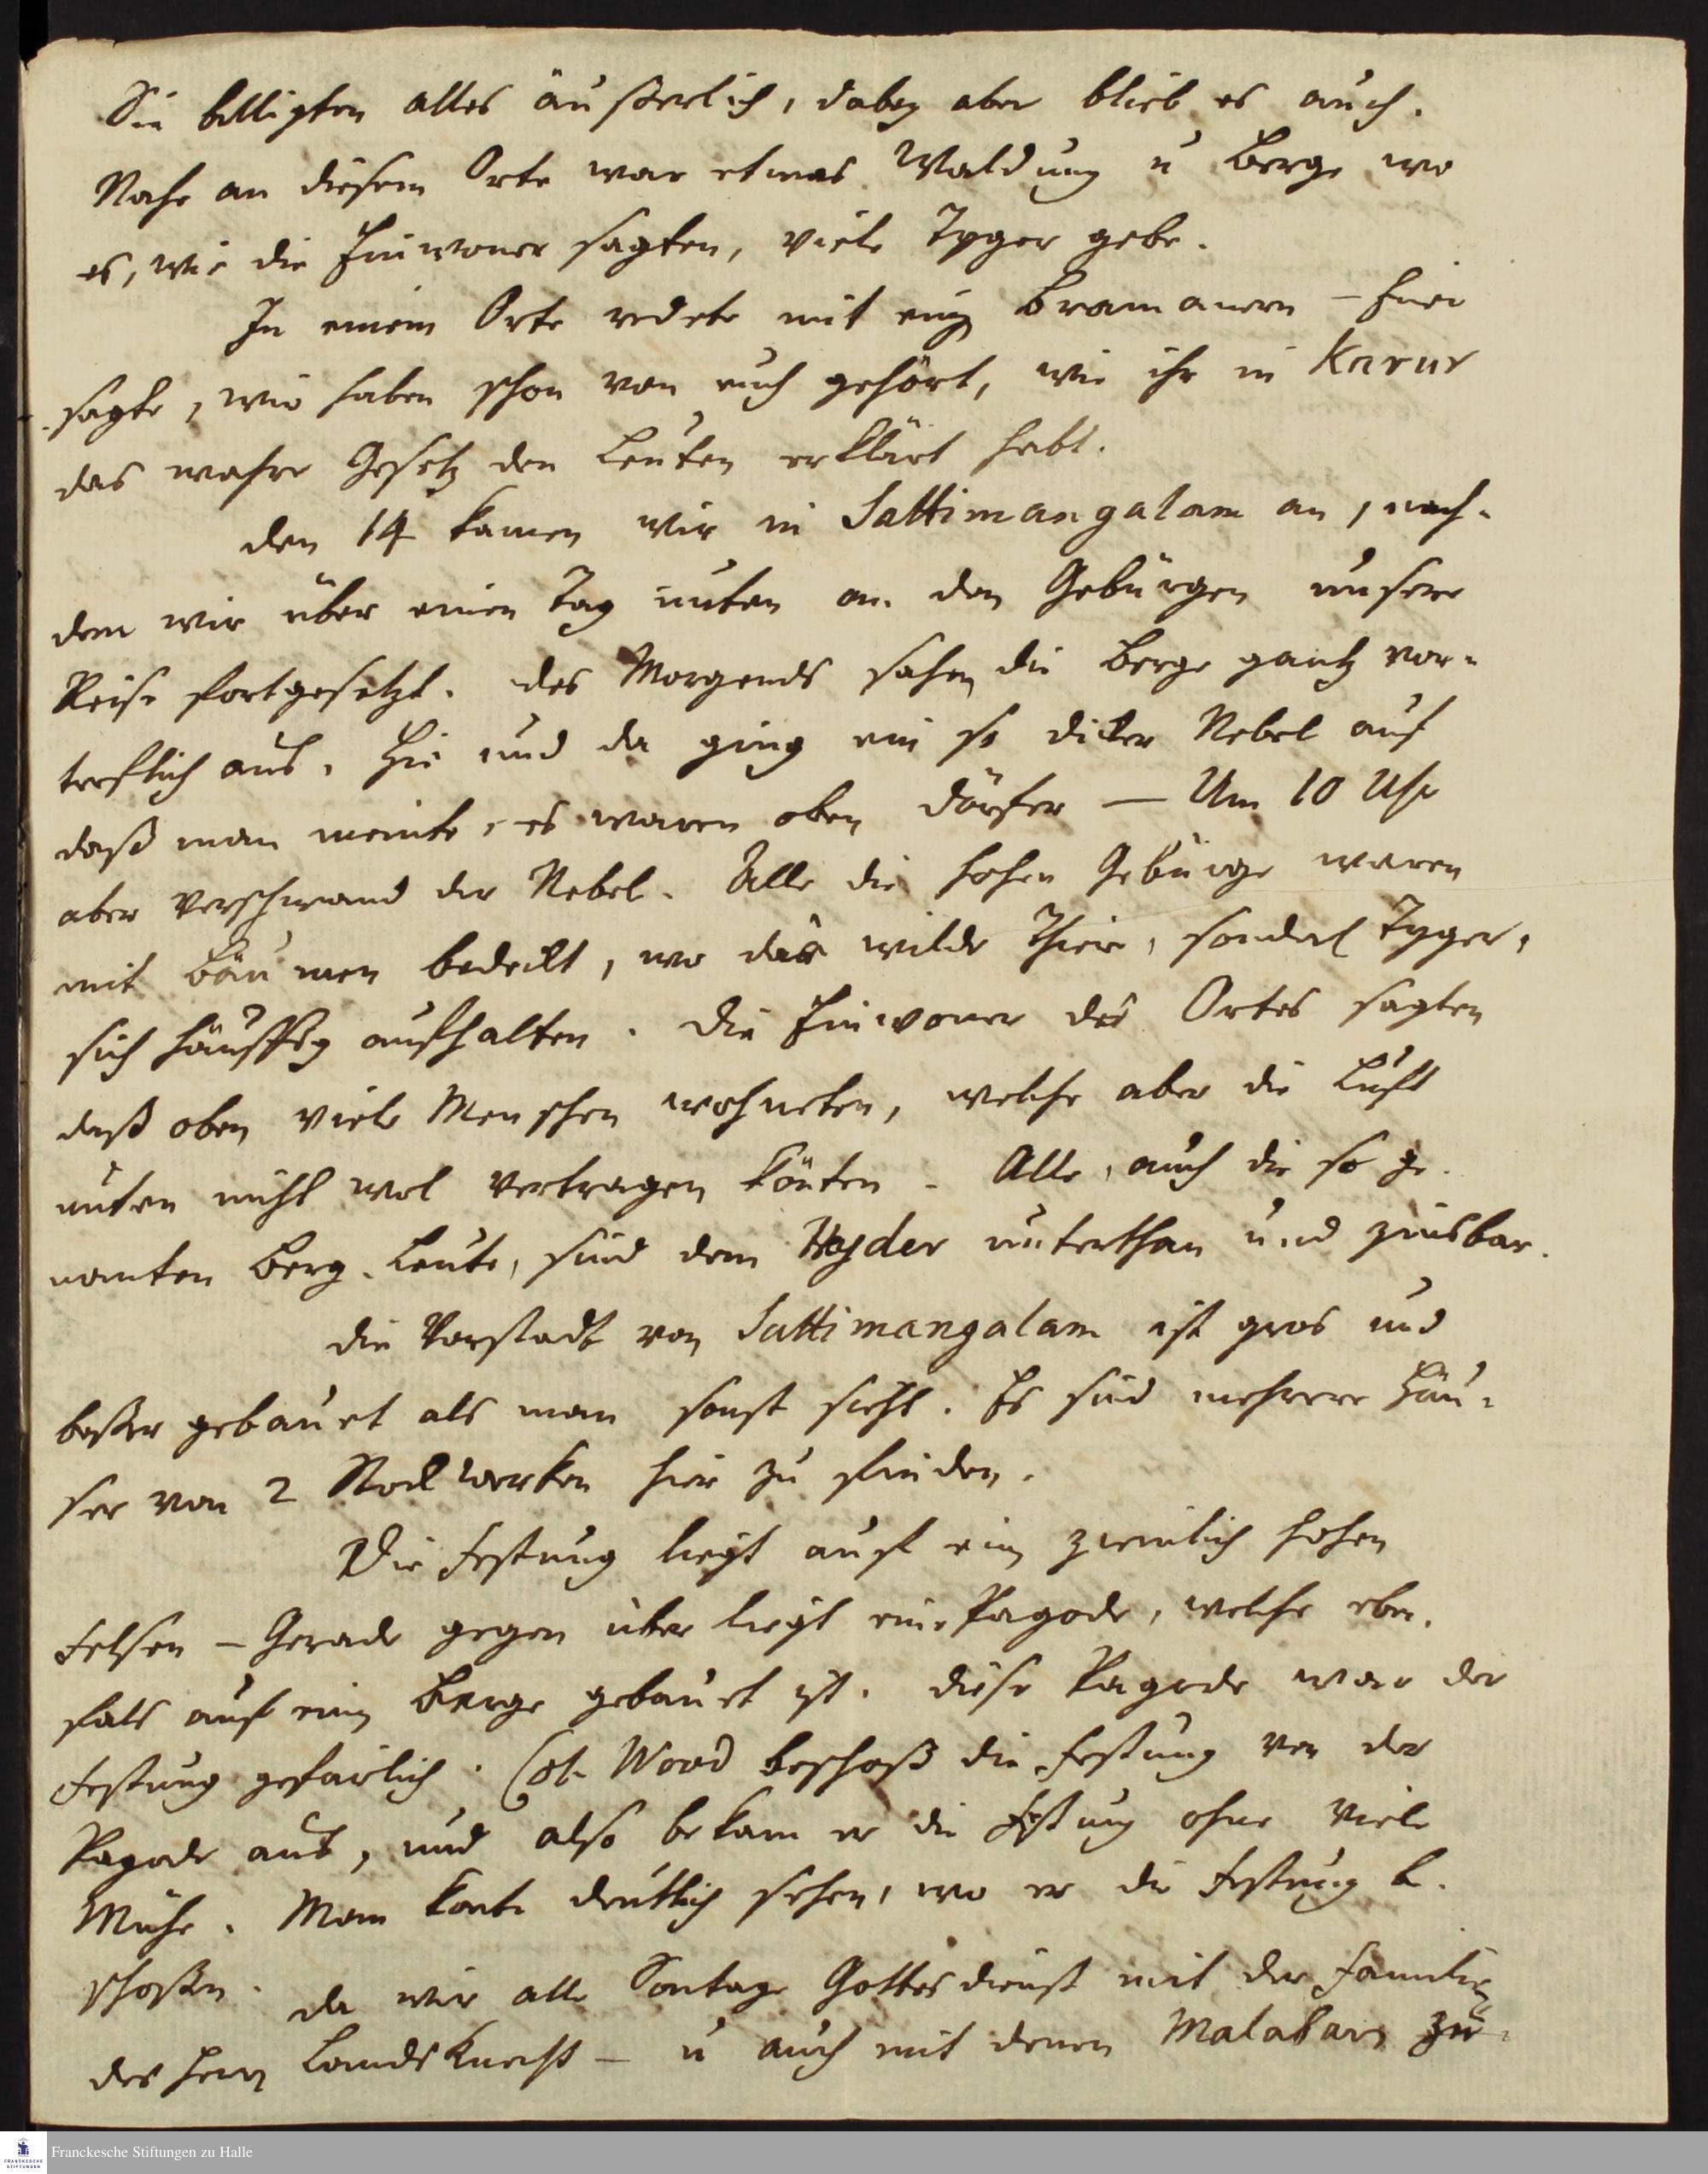 Sie billigten alles äuserlich, dabey aber blieb es auch.
Nahe an diesem Orte war etwas Waldung u Berge wo
es, wie die Einwoner sagten, viele Tyger gebe.
In einem Orte redete mit einig Bramanern – Einer
sagte, wir haben schon von euch gehört, wie ihr in Karur
das wahre Gesetz den Leuten erklärt habt.
den 14 kamen wir in Sattimangalam an, nach-
dem wir über einen Tag unten an den Gebürgen unsere
Reise fortgesetzt. des Morgends sahen die Berge gantz vor-
treflich aus. Hie und da ging ein so dicker Nebel auf
daß man meinte, es waren oben Dörfer — Um 10 Uhr
aber verschwand der Nebel. Alle die hohen Gebürge waren
mit Bäumen bedeckt, wo die wilde Thiere, sonderl Tyger,
sich häuffig aufhalten. die Einwoner des Ortes sagten
daß oben viele Menschen wohneten, welche aber die Luft
unten nicht wol vertragen könten. Alle, auch die so ge-
nanten Berg-Leute, sind dem Hyder unterthan und zinsbar.
die Vorstadt von Sattimangalam ist gros und
besser gebauet als man sonst sieht. Es sind mehrere Häu-
ser von 2 Stockwerken hier zu finden.
Die Festung liegt auf ein ziemlich hohen
Felsen – Gerade gegen über liegt eine Pagode, welche eben-
fals auf ein Berge gebauet ist. diese Pagode war der
Festung gefärlich. Col. Wood beschoß die Festung von der
Pagode aus, und also bekam er die Festung ohne viele
Mühe. Man konte deutlich sehen, wo er die Festung be-
schossen. da wir alle Sontage Gottesdienst mit der Familie
des Herrn Landsknecht – u auch mit denen Malabaren zu-
Franckesche Stiftungen zu Halle
FRANCKESCHE
STIFTUNGEN